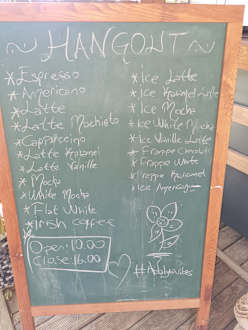 HANGOUT
*Espresso
*Americano
*Latte
*Latte Machieto
*Cappuccino
*Latte Karamel
*Latte Vanille
*Mocha
*White Mocha
*Flat White
*Irish coffee
Open: 10.00
Close: 16.00
*Ice Latte
*Ice Karamel
*Ice Mocha
*Ice White Mocha
*Ice Vanille Latte
*Frappe Chocolate
*Frappe White
*Frappe Karamel
*Ice Americano